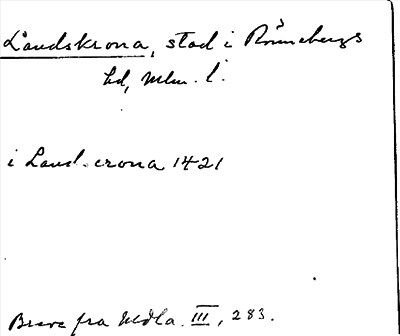 Landskrona, stad i Rönnebergs
hd, Mlm. l.
i Land.crona 1421
Breve fra Medla. III, 283.